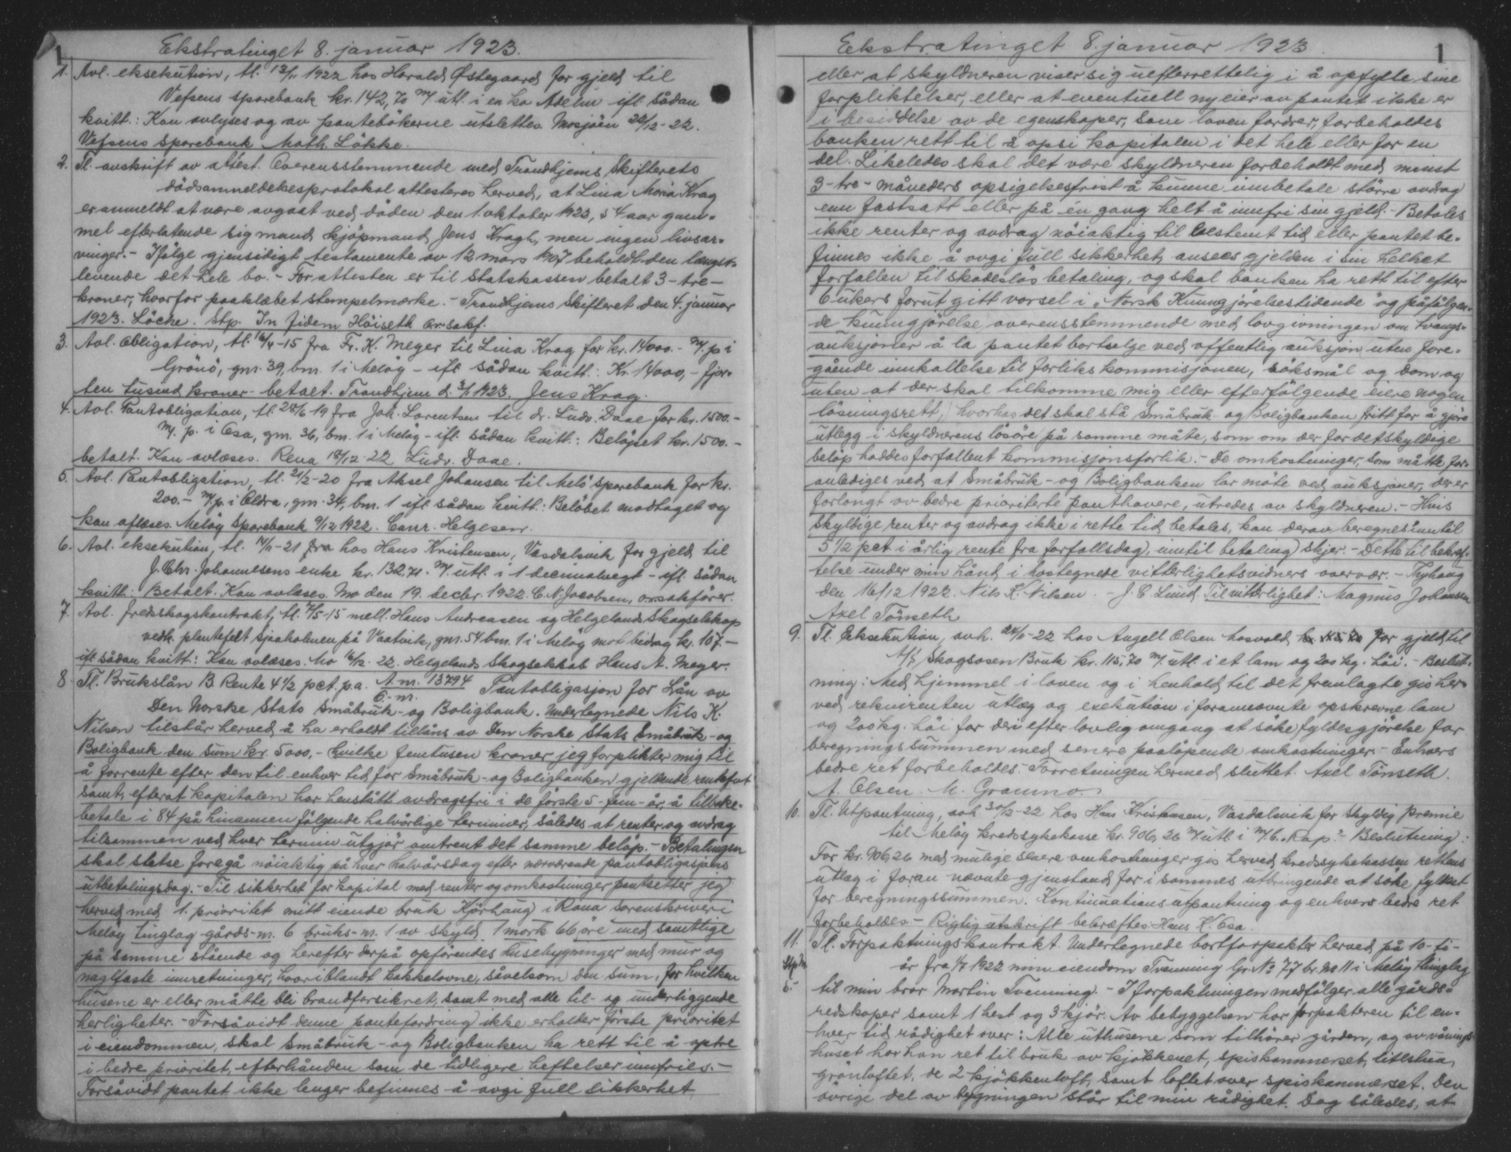 1 Ekstratinget 8. januar 1923.
1. Avl. eksekution, tl. 12/1 1922 hos Harald Østegaard for gjeld til
Vefsens sparebank kr. 142,70 m/ utl. i en ko Adelin ifl. sådan
kvitt.: Kan avlyses og av pantebökerne utslettes. Mosjöen 20/12-22.
Vefsens sparebank Math. Løkke.
2. Tl. avskrift av attest. Overensstemmende med Trondhjems skifterets
dødsanmeldelsesprotokol attesteres herved, at Lina Maria Krag
er anmeldt at være avgaat ved döden den 1 oktober 1923, 54 aar gam-
mel efterlatende sig mand, kjøpmand Jens Kragh, men ingen livsar-
vinger.- Ifølge gjensidigt testamente av 12 mars 1907 beholder den længst-
levende det hele bo.- For attesten er til statskassen betalt 3-tre-
kroner, hvorfor paaklæbet stempelmærke.- Trondhjems skifteret den 4. januar
1923. Löcke. Stp. In fidem Höiseth o.r.sakf.
3. Avl. Obligation, tl. 16/4-15 fra Fr. K. Meyer til Lina Krag for kr. 14000.- m/ p. i
Grönö, gm. 39, bm. 1 i Meløy - ifl. sådan kvitt: Kr. 14000,- fjor-
ten tusind kroner - betalt. Trondhjem d. 3/1 1923. Jens Krag.
4. Avl. Pantobligation, tl. 28/6 19 fra Joh. Lorentsen til dr. Ludv. Daae for kr. 1500.-
m/ p. i Osa, gm. 36, bm. 1 i Meløy - ifl. sådan kvitt.: Beløpet kr. 1500.-
betalt. Kan avlæses. Rena 18/12-22 Ludv. Daae.
5. Avl. Pantobligation, tl. 21/2-20 fra Aksel Johansen til Melö sparebank for kr.
200.- m/ p. i Eldra, gm. 34, bm. 1 ifl. sådan kvitt.: Beløbet modtaget og
kan aflæses. Meløy Sparebank 9/12 1922. Conr. Helgesen.
6. Avl. eksekution, tl. 14/11-21 fra hos Hans Kristensen, Vasdalsvik for gjeld til
J. Chr. Johannesens enke kr. 132,71. m/ utl. i 1 decimalvegt - ifl. sådan
kvitt. Betalt. Kan avlæses. Mo den 19. decbr. 1922. C. N. Jacobsen, o.r.sakfører.
7. Avl. fredskogskontrakt, tl. 7/5-15 mell. Hans Andreasen og Helgelands Skogselskap
vedk. plantefelt Sjaaholmen på Vaatvik, gm. 54 bm. 1 i Meløy mot bidrag kr. 107.-
ifl. sådan kvitt: Kan avlæses. Mo 16/12-22. Helgelands Skogselskab Hans A. Meyer.
8. Tl. Brukslån B Rente 4 1/2 pct. p.a. A m. 13794 Pantobligasjon for Lån av
Den Norske Stats Småbruk- og Boligbank. Undertegnede Nils K.
Nilsen tilstår herved å ha erholdt tillåns av Den Norske Stats Småbruk- og
Boligbank den sum kr. 5000,- hvilke femtusen kroner jeg forplikter mig til
å forrente efter den til enhver tid for Småbruk- og Boligbanken gjeldende rentefot
samt, efterat kapitalen har henstått avdragsfri i de første 5-fem-år, å tilbake-
betale i 84 på hinannen følgende halvårlige terminer, således at renter og avdrag
tilsammen ved hver termin utgjør omtrent det samme beløp.- Betalingen
skal stedse foregå nøiaktig på hver halvårsdag efter nærværende pantobligasjons
utbetalingsdag.- Til sikkerhet for kapital med renter og omkostninger pantsetter jeg
herved med 1. prioritet mitt eiende bruk Kjørhaug i Rana sorenskriveri
Meløy tinglag gårds-nr. 6 bruks-nr. 1 av skyld 1 mark 66 øre med samtlige
på samme stående og herefter derpå opførendes husebygninger med mur og
naglfaste innretninger, hvoriblandt bakkelovne, såvelsom den sum, for hvilken
husene er eller måtte bli brandforsikret, samt med alle til- og underliggende
herligheter.- Forsåvidt denne pantefordring ikke erholder første prioritet
i eiendommen, skal Småbruk- og Boligbanken ha rett til å optre
i bedre prioritet, efterhånden som de tidligere heftelser innfries.-
Forsåvidt pantet ikke lenger befinnes å avgi full sikkerhet
Ekstratinget 8. januar 1923. 1
eller at skyldneren viser sig uefterrettelig i å opfylle sine
forpliktelser, eller at eventuell ny eier av pantet ikke er
i besiddelse av de egenskaper, som loven fordrer, forbeholdes
banken rett til å opsi kapitalen i det hele eller for en
del. Likeledes skal det være skyldneren forbeholdt med minst
3-tre-måneders opsigelsesfrist å kunne innbetale større avdrag
enn fastsatt eller på én gang helt å innfri sin gjeld.- Betales
ikke renter og avdrag nøiaktig til bestemt tid eller pantet be-
finnes ikke å avgi full sikkerhet, ansees gjelden i sin helhet
forfallen til skadesløs betaling, og skal banken ha rett til efter
6 ukers forut gitt varsel i „Norsk Kunngjørelsestidende" og påfølgen-
de kunngjørelse overensstemmende med lovgivningen om tvangs-
auksjoner å la pantet bortselge ved offentlig auksjon uten fore-
gående innkallelse til forlikskommisjonen, søksmål og dom og
uten at der skal tilkomme mig eller efterfølgende eiere nogen
løsningsrett, hvorhos det skal stå Småbruk- og Boligbanken fritt for å gjøre
utlegg i skyldnerens løsøre på samme måte, som om der for det skyldige
beløp haddes forfallent kommisjonsforlik.- De omkostninger, som måtte for-
anlediges ved at Småbruk- og Boligbanken lar møte ved auksjoner, der er
forlangt av bedre prioriterte panthavere, utredes av skyldneren.- Hvis
skyldige renter og avdrag ikke i rette tid betales, kan derav beregnes inntil
5 1/2 pct i årlig rente fra forfallsdag, inntil betaling skjer.- Dette til bekref-
telse under min hånd i hostegnede vitterlighetsvidners overvær.- Kjørhaug
den 16/12 1922. Nils K. Nilsen.- J. E. Lund. Til vitterlighet: Magnus Johansen
Axel Tönseth
9. Tl. Eksekution, avh. 24/10-22 hos Angell Olsen Mosvold for gjeld til
A/S Skogsosen Bruk kr. 115,70 m/ utl. i et lam og 200 kg. høi.- Beslut-
ning: Med hjemmel i loven og i henhold til det fremlagte gis her-
ved rekvirenten utlæg og exekution i forannævnte opskrevne lam
og 200 kg. høi for deri efter lovlig omgang at søke fyldesgjørelse for
beregningssummen med senere paaløpende omkostninger.- Enhvers
bedre ret forbeholdes.- Forretningen hermed sluttet. Axel Tönseth.
A. Olsen. M. Gramno.
10. Tl. Utpantning, avh. 30/12-22 hos Hans Kristensen, Vasdalsvik for skyldig præmie
til Meløy kredssykekasse kr. 906,26 m/ utl. i Beslutning:
For kr. 906,26 med mulige senere omkostninger gis herved kredssykekassen rettens
utlæg i foran nævnte gjenstand for i sammes utbringende at søke fyldest
for beregningssummen. Kontinuations utpantning og enhvers bedre ret
forbeholdes.- Rigtig utskrift bekræftes Hans K. Osa.
11. Tl. Forpaktningskontrakt. Undertegnede bortforpakter herved på 10-ti-
Stp. år fra 1/7 1922 min eiendom Tvenning Gr. No 77 br. no 11 i Meløy tinglag
til min bror Martin Tvenning.- I forpaktningen medfølger alle gårds-
redskaper samt 1 hest og 3 kjør. Av bebyggelsen har forpakteren til en-
hver tid rådighet over: Alle uthusene som tilhører gården, og av vånings-
huset har han ret til bruk av kjøkkenet, spiskammerset, litlstua,
grönloftet, de 2 kjøkkenloft, samt loftet over spiskammerset. Den
øvrige del av bygningen står til min rådighet. Dog således, at